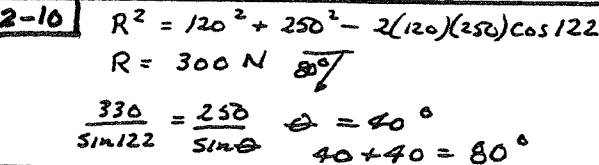 2-10 R² = 120² + 250² - 2(120)(250)cos122
R = 300 N 80°
330/sin122 = 250/sinθ θ = 40°
40+40 = 80°